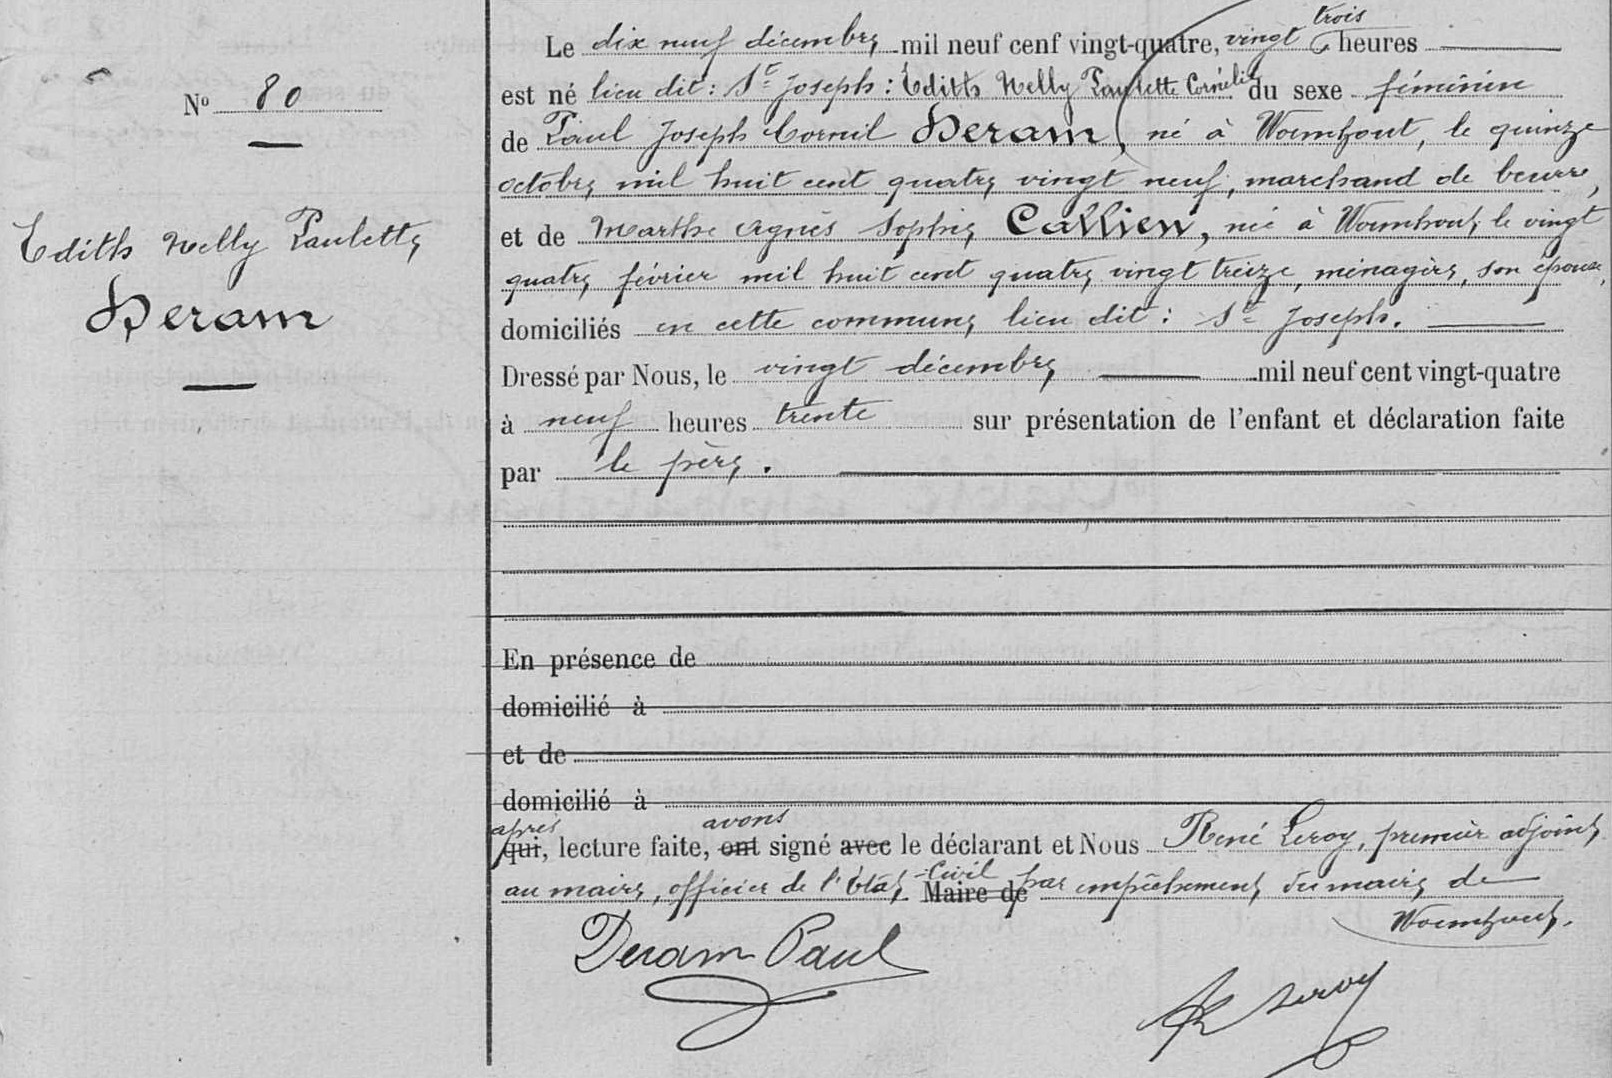 N° 80
Edith Nelly Paulette
Deram
Le dix neuf décembre mil neuf cent vingt-quatre, vingt trois heures
est né lieu dit : St Joseph : Edith Nelly Paulette Cornélie du sexe féminin
de Paul Joseph Cornil Deram, né à Wormhout, le quinze
octobre mil huit cent quatre vingt neuf, marchand de beurre,
et de Marthe Agnès Sophie Callien, née à Wormhout, le vingt
quatre février mil huit cent quatre vingt treize, ménagère, son épouse,
domiciliés en cette commune, lieu dit : St Joseph.
Dressé par Nous, le vingt décembre mil neuf cent vingt-quatre
à neuf heures trente sur présentation de l'enfant et déclaration faite
par le père.
En présence de
domicilié à
et de
domicilié à
après avons
qui, lecture faite, ont signé avec le déclarant et Nous René Leroy, premier adjoint
au maire, officier de l'Etat-Civil Maire de par empêchement du maire de
Wormhout.
Deram Paul
R Leroy